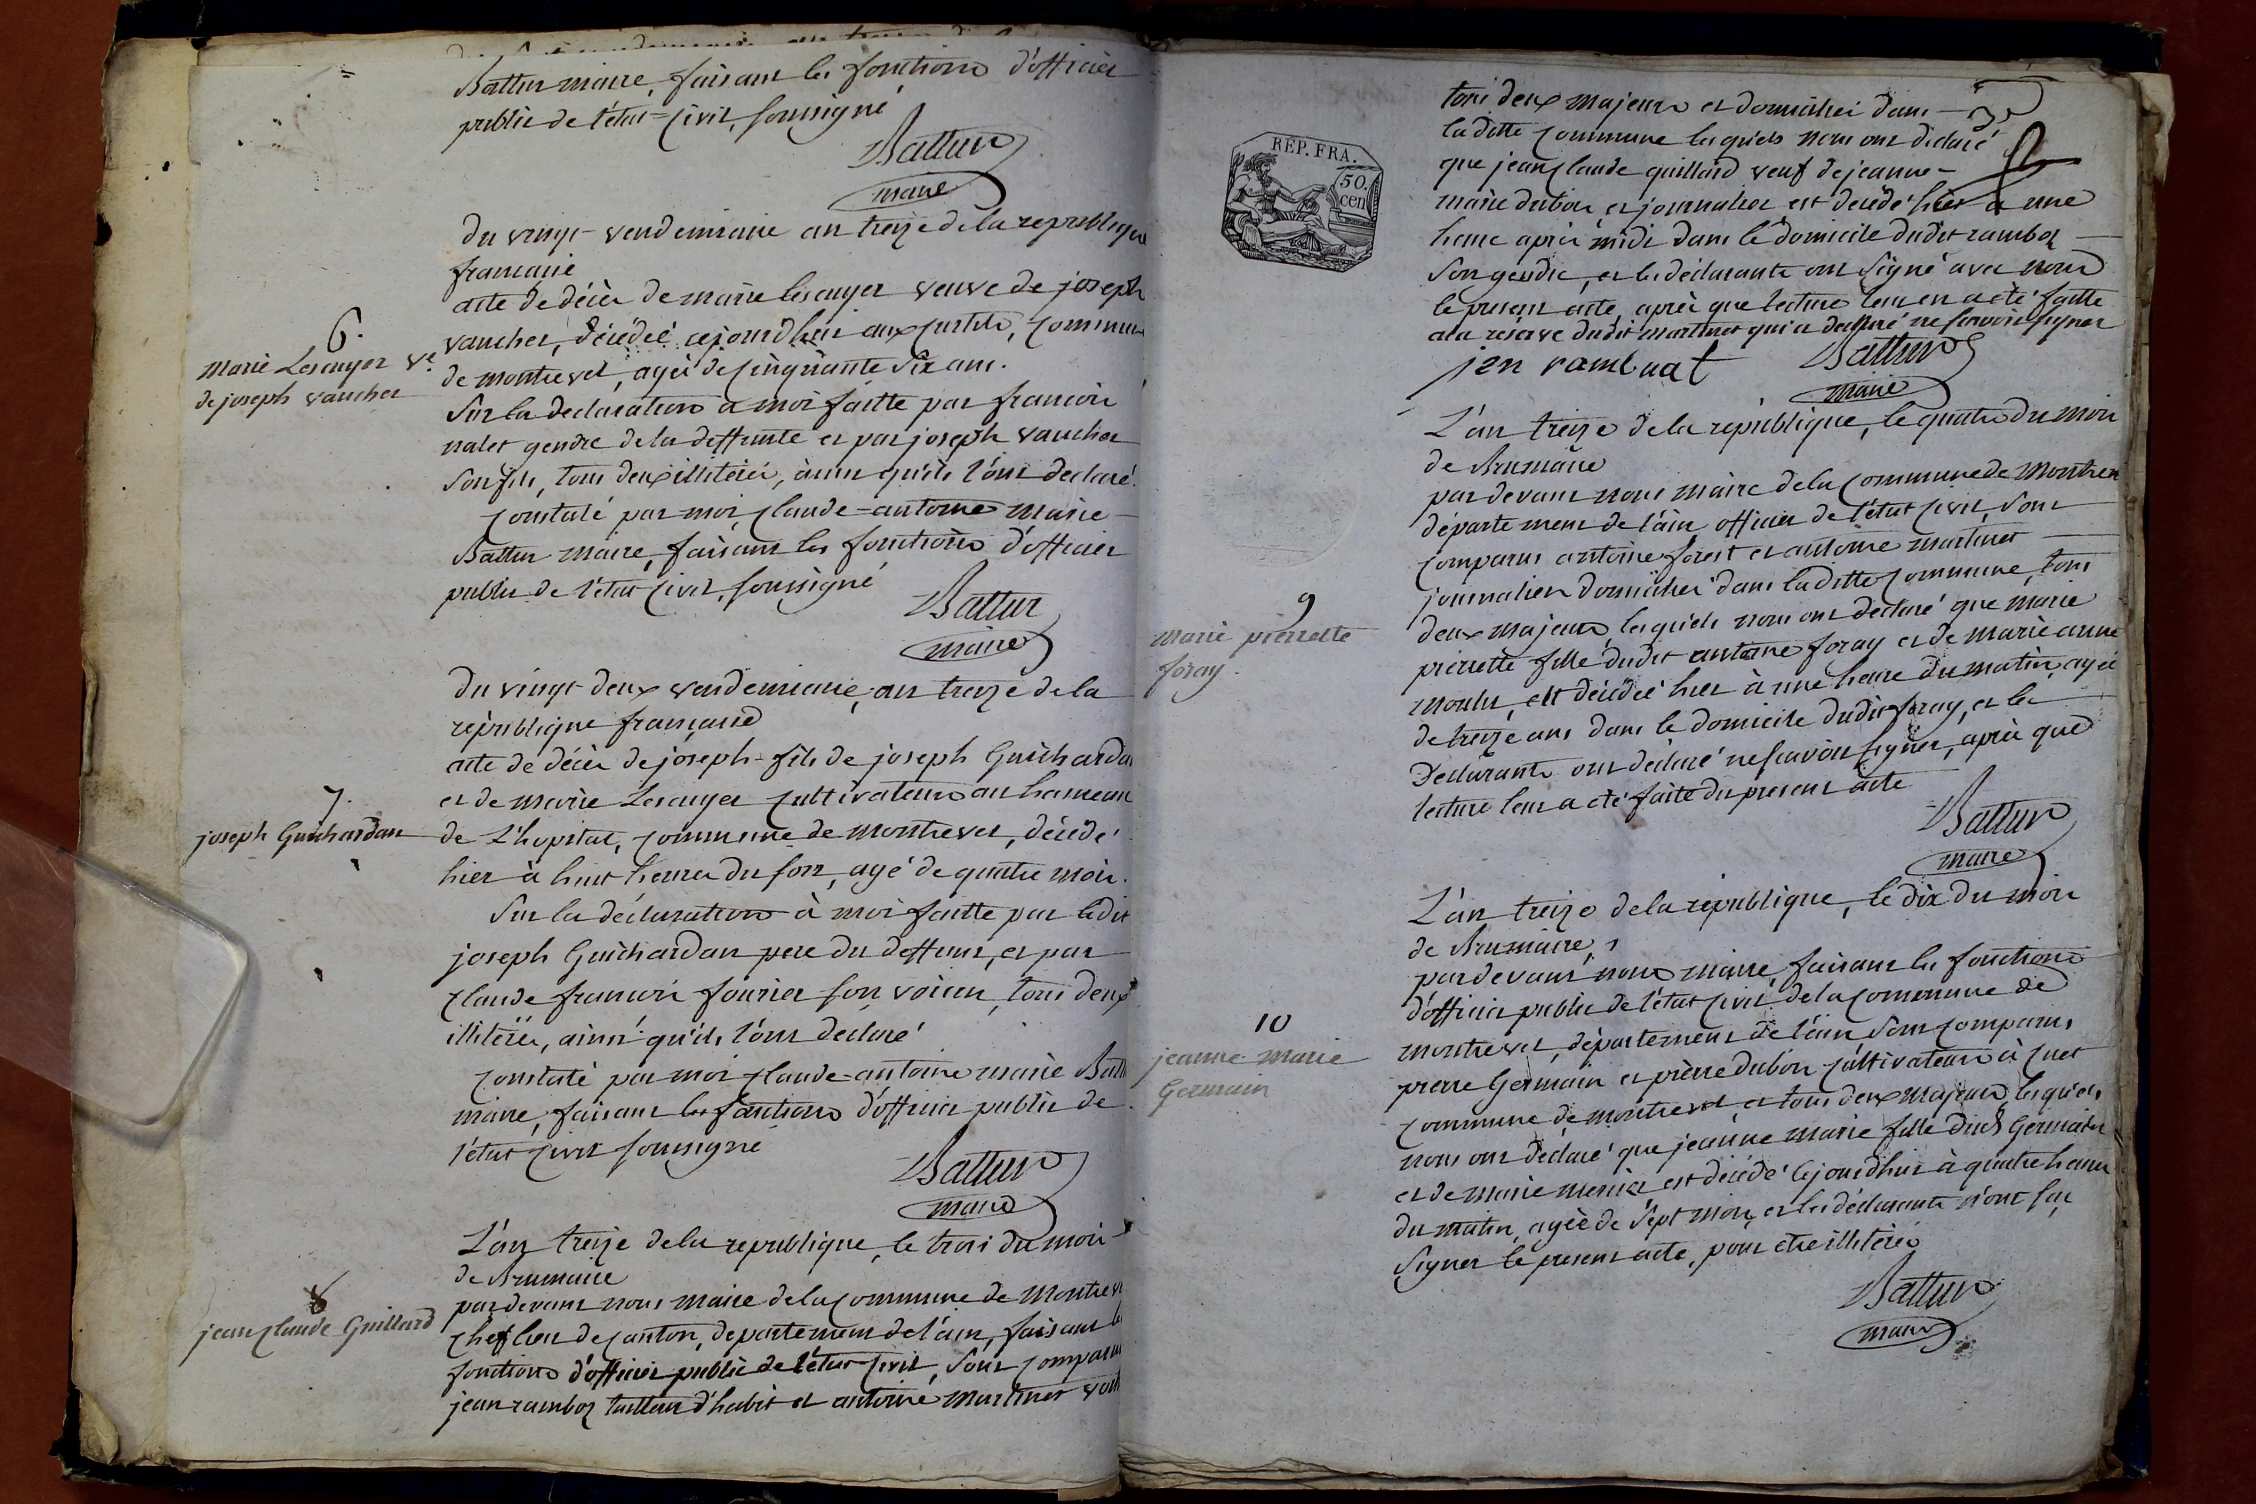 Battur maire, faisant les fonctions d'officier
public de l'état-civil, soussigné
Battur
maire
du vingt vendemiaire an treize de la republique
francaise
6.
marie Lescuyer ve
de joseph vaucher
acte de décès de marie lescuyer veuve de joseph
vaucher, décédée cejourdhui aux curtils, commune
de montrevel, agée de cinquante six ans.
Sur la declaration a moi faitte par francois
nalet gendre de la deffunte et par joseph vaucher
son fils, tous deux illitérés, ainsi qu'ils l'ont declaré.
constaté par moi claude-antoine marie
Battur maire, faisant les fonctions d'officier
public de l'état civil, soussigné
Battur
maire
du vingt-deux vendemiaire, an treize de la
république française
7.
joseph Guichardan
acte de décès de joseph-fils de joseph Guichardan
et de marie Lescuyer cultivateurs au hameau
de L'hopital, commune de montrevel, décédé
hier à huit heures du soir, agé de quatre mois.
Sur la déclaration à moi faitte par ledit
joseph Guichardan pere du deffunt, et par
claude francois fourier son voisin, tous deux
illitérés, ainsi qu'ils l'ont declaré
constaté par moi claude-antoine marie Batt
maire, faisant les fonctions d'officier public de
l'état civil soussigné
Battur
maire
L'an treize de la republique, le trois du mois
de Brumaire
8
jean claude Guillard
pardevant nous maire de la commune de montrev
chef lieu de canton, departement de l'ain, faisant les
fonctions d'officier public de l'état civil, sont comparus
jean ramboz tailleur d'habit et antoine martinet
REP. FRA.
50.
cen
tous deux majeurs et domiciliés dans
la ditte commune lesquels nous ont declaré
que jean claude guillard veuf de jeanne-
marie dubois et journalier est decédé hier a une
heure après midi dans le domicile dudit ramboz
son gendre, et les déclarants ont signé avec nous
le present acte, après que lecture leur en a été faitte
a la réserve dudit martinet qui a declaré ne scavoir signer
jen rambuat
Battur
maire
L'an treize de la république, le quatre du mois
de Brumaire
9
marie pierrette
foray.
par devant nous maire de la commune de montrev
département de l'ain, officier de l'état civil, sont
comparus antoine forest et antoine martinet
journaliers domiciliés dans la ditte commune, tous
deux majeurs, lesquels nous ont declaré que marie
pierrette fille dudit antoine foray et de marie anne
est décédée hier à une heure du matin, agée
de treize ans dans le domicile dudit foray, et les
déclarants ont déclaré ne scavoir signer, après que
lecture leur a été faite du present acte
Battur
maire
L'an treize de la république, le dix du mois
de Brumaire,
10
jeanne marie
Germain
pardevant nous maire faisant les fonctions
d'officier public de l'état civil de la commune de
montrevel, département de l'ain sont comparus
pierre Germain et pierre dubois cultivateurs à cuet
commune de montrevel, et tous deux majeurs, lesquels
nous ont déclaré que jeanne marie fille dud Germain
et de marie mercier, est décédé cejourdhui à quatre heures
du matin, agée de sept mois, et les déclarants n'ont sçu
signer le present acte, pour etre illitérés
Battur
maire